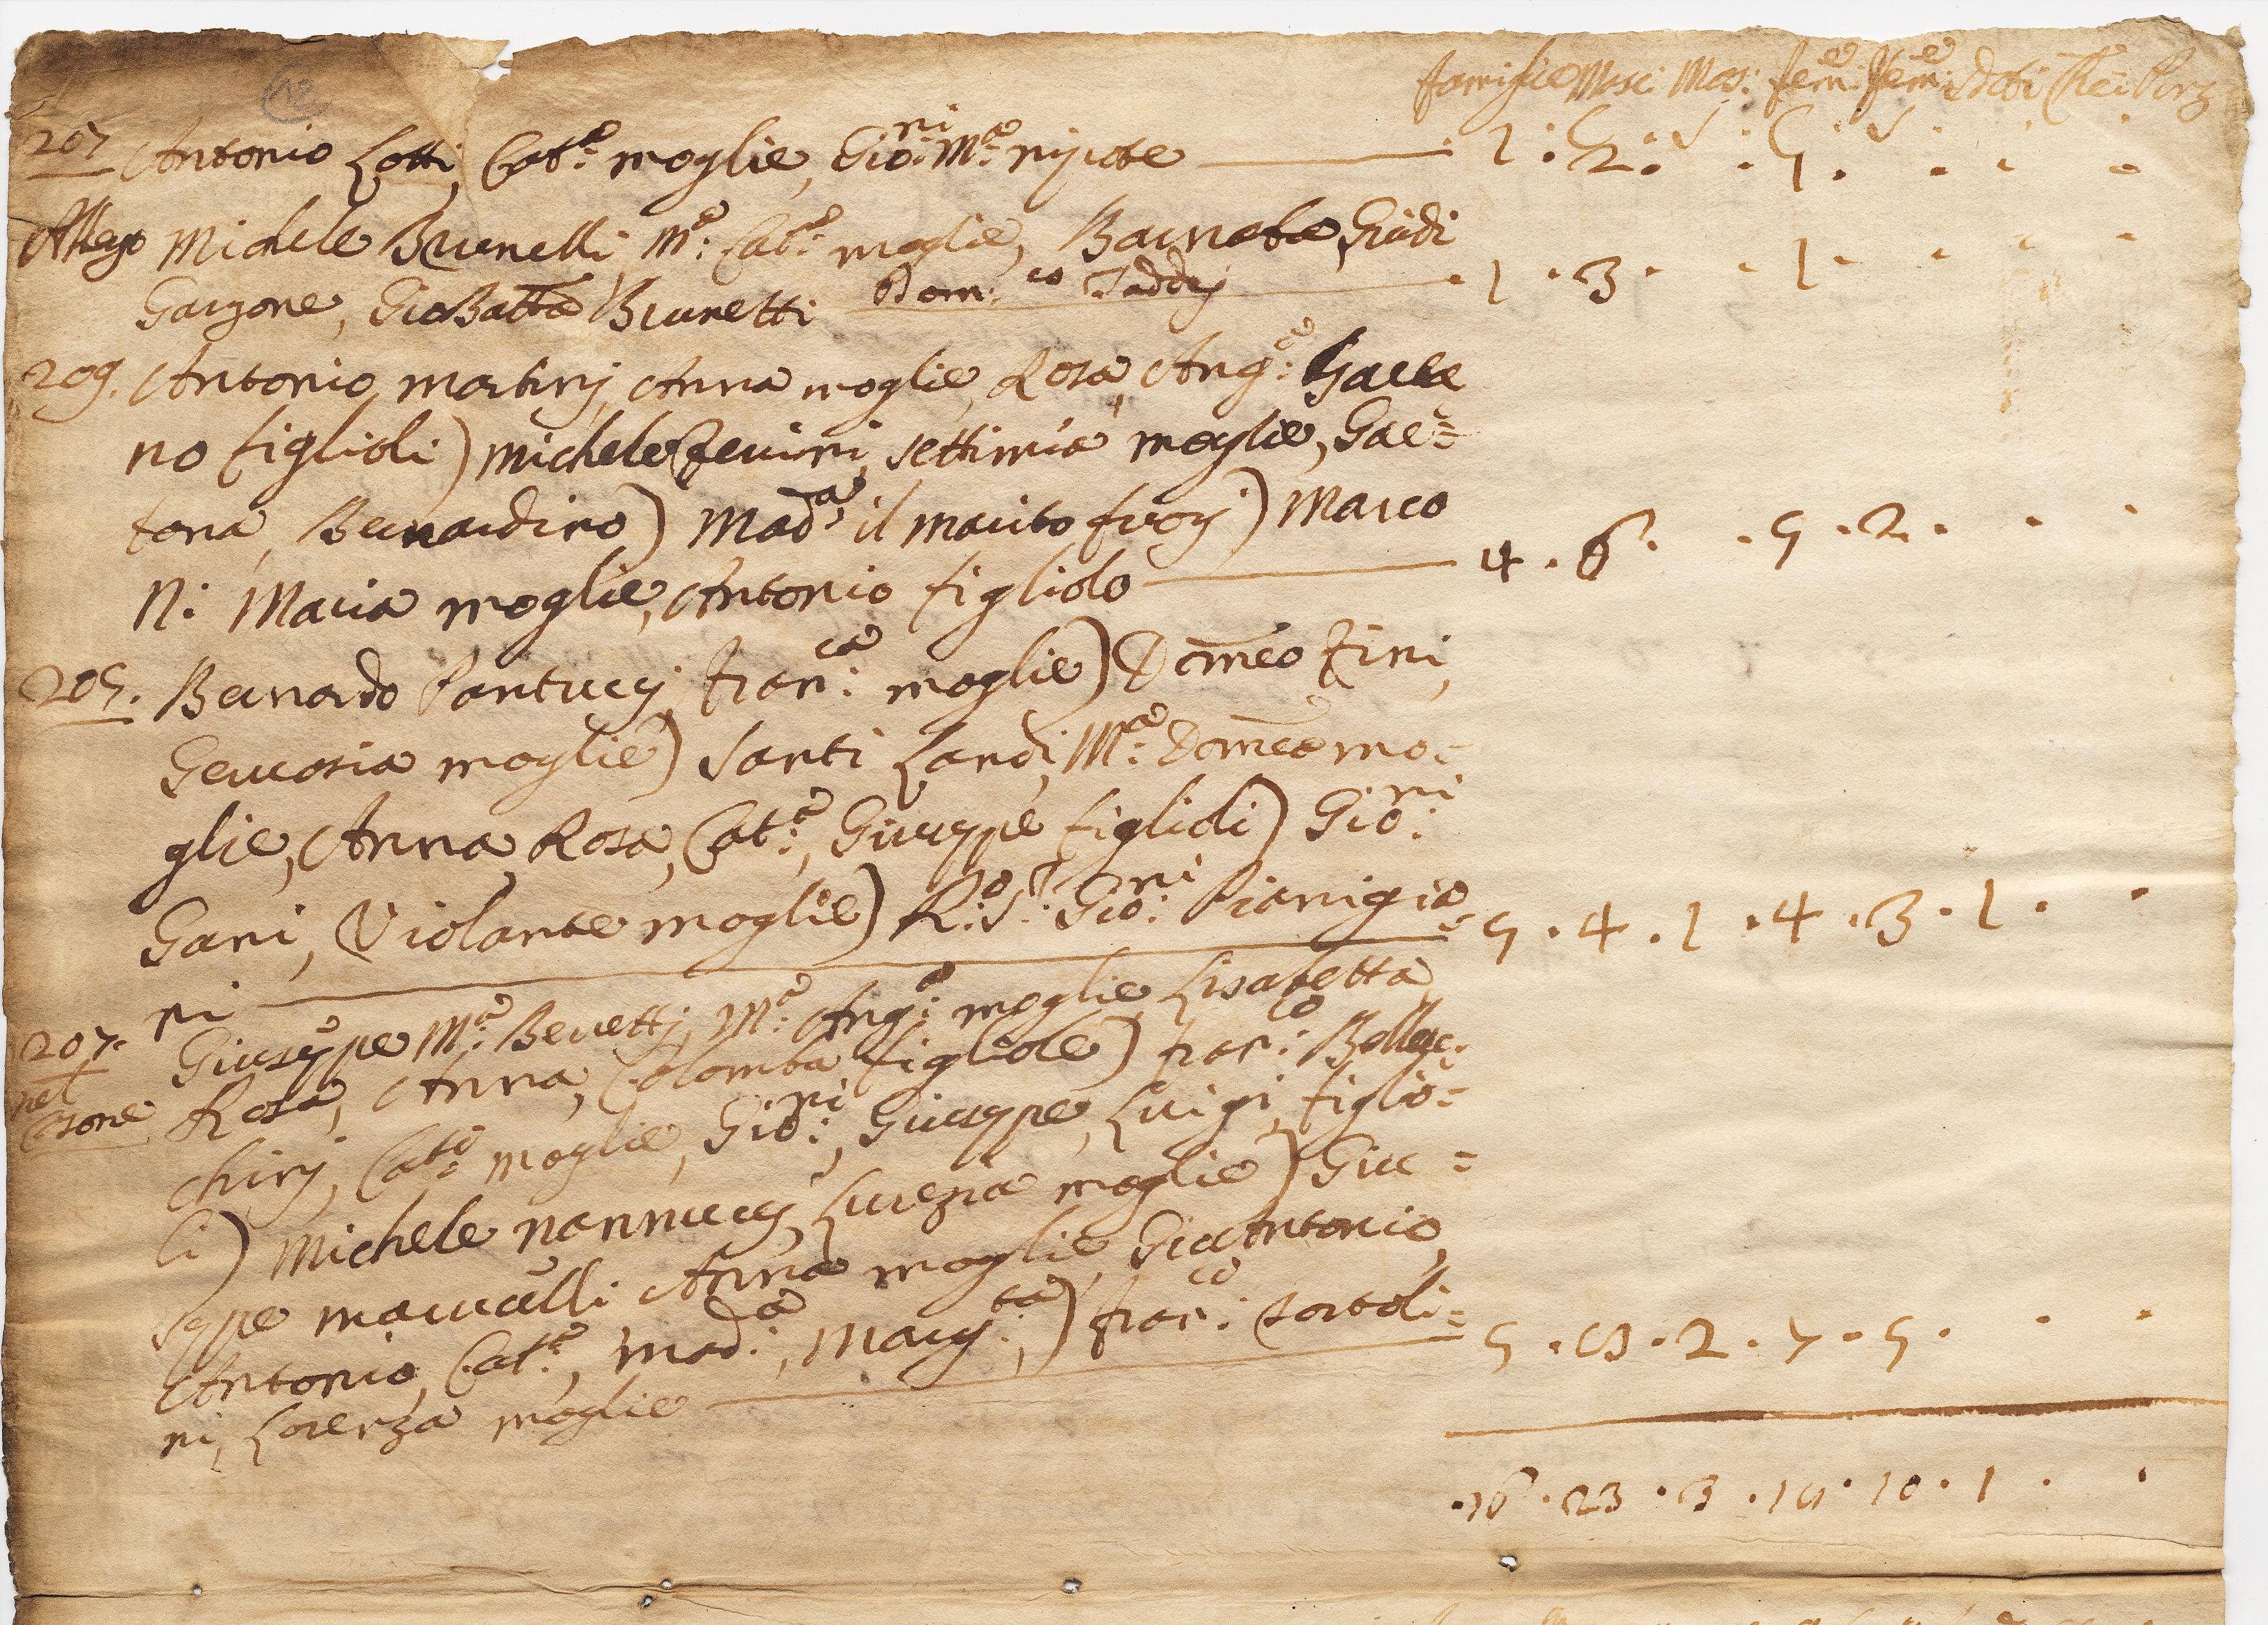 famiglie Masc: Mas: Fem: Fem: Preti
12
207 Antonio Lotti, Cat.ª moglie, Gio:ni M:ª nipote 1 . 2 . . 1 . . . .
Michele Brunelli, M:ª Cat:ª moglie, Barnaba Giudi
Garzone, Gio Batta Brunetti Dom:co Taddej . 1 . 3 . . 1 . . . .
209. Antonio Martinj, Anna moglie, Rosa, Ang:ª Gaeta
no figlioli) Michele Zerini, Settimia moglie, Gae=
tana, Bernardino) Mad:ª il marito fuorj) Marco
N: Maria moglie, Antonio figliolo 4 . 6 . . 5 . 2 . . .
205. Bernardo Pantuccj, Fran:ca moglie) Domeco Fini,
Gerconia moglie) Santi Landi, M:ª Domeca mo=
glie, Anna, Rosa, Cat:ª, Giuseppe figlioli) Gio:ni
Gani, Violante moglie) R:do S:r Gio:ni Pianigia= 5 . 4 . 1 . 4 . 3 . 1 . .
ni
207. Giuseppe M:ª Berrettj, M:ª Ang:ª moglie, Lisabetta,
nel Rosa, Anna, Colomba figliole) Fran:co Bellac=
Casone chinj, Cat:ª moglie, Gio:ni, Giuseppe, Luigi, figlio=
li) Michele Nannuccj, Lucrezia moglie) Giu=
seppe Marcucelli Anna moglie, Gio Antonio,
Antonio, Cat:ª, Mad:ª, Marg:ta,) Fran:co Tortoli=
ni, Lorenza moglie 5 . 8 . 2 . 7 . 5 . . .
. 16 . 23 . 3 . 19 . 10 . 1 . .